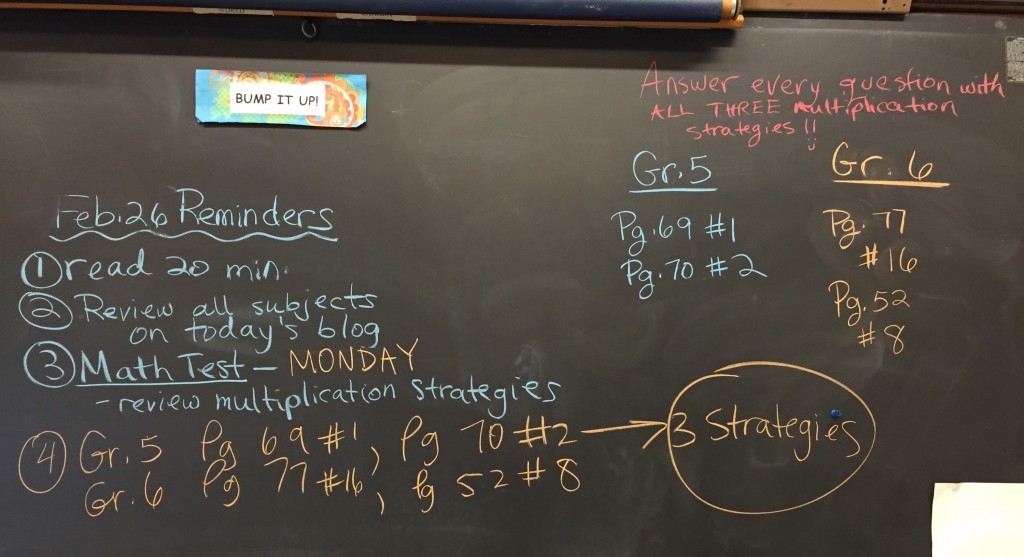 BUMP IT UP!
Answer every question with
ALL THREE multiplication
strategies !!
Gr. 5
Pg. 69 #1
Pg. 70 #2
Gr. 6
Pg. 77
#16
Pg. 52
#8
Feb. 26 Reminders
① read 20 min.
② Review all subjects
on today's blog
③ Math Test - MONDAY
- review multiplication strategies
④ Gr. 5 Pg 69 #1, Pg 70 #2 → 3 strategies
Gr. 6 Pg 77 #16, Pg 52 #8